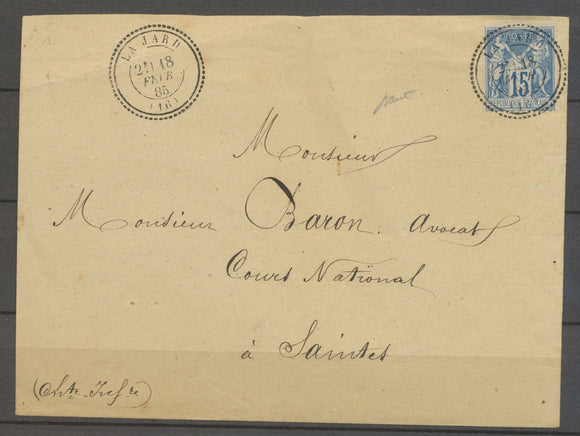 LA JARD
2E 18
FEVR
85
(16)
LA JARD
18
15
REPUBLIQUE FRANCAISE
Monsieur
Monsieur Baron. Avocat
Cours National
à Saintes
(Chte. Infre)